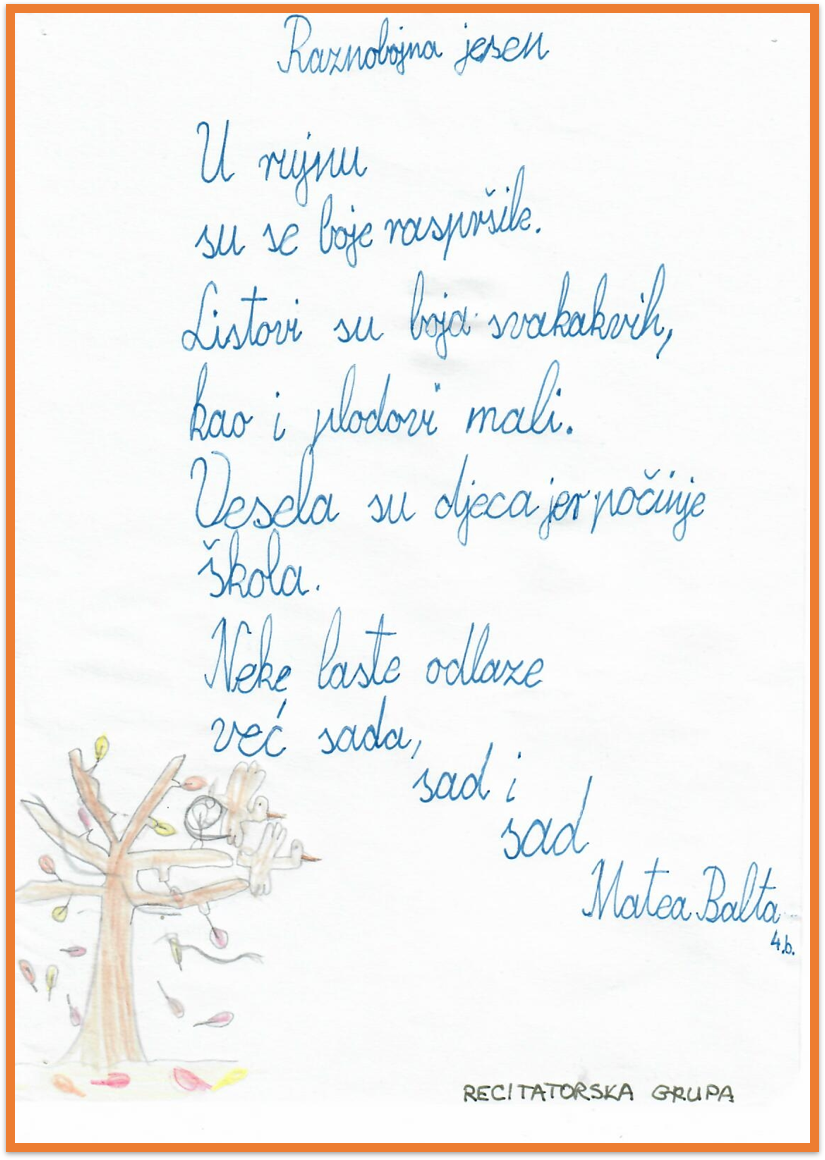 Raznobojna jesen
U rujnu
su se boje raspršile.
Listovi su boja svakakvih,
kao i plodovi mali.
Vesela su djeca jer počinje
škola.
Neke laste odlaze
već sada,
sad i
sad
Matea Balta
4.b.
RECITATORSKA GRUPA